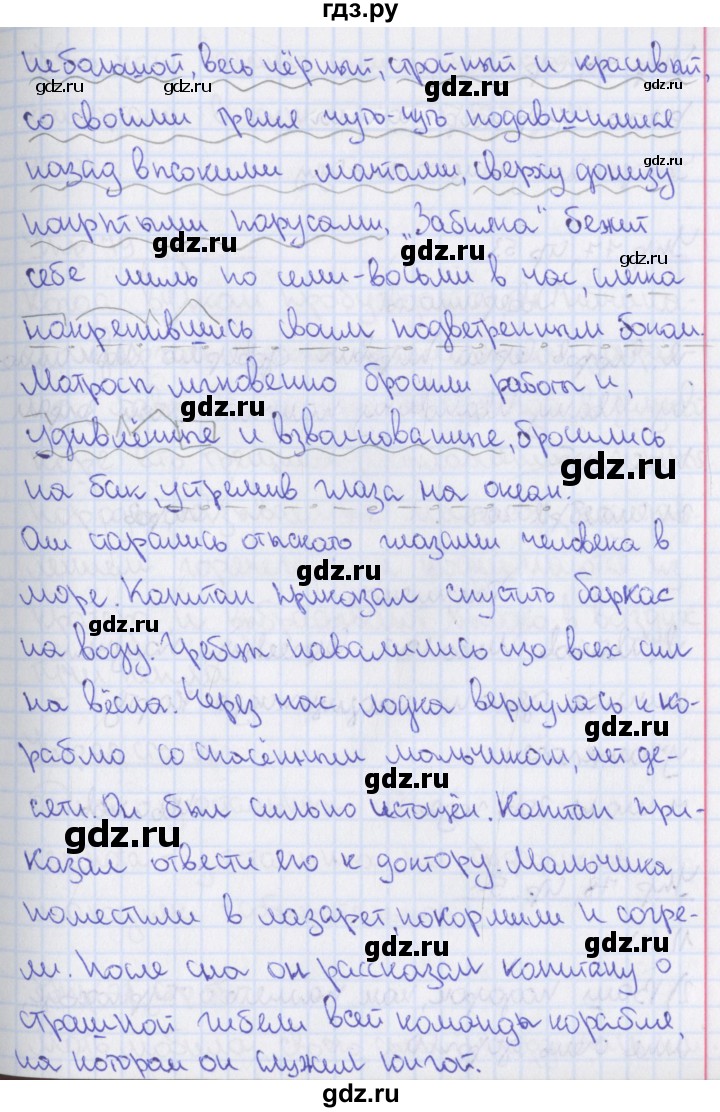 гдз.ру
небольшой, весь чёрный, стройный и красивый,
gdz.ru gdz.ru gdz.ru
gdz.ru
со своими тремя чуть-чуть подавшимися
назад высокими мачтами, сверху донизу
gdz.ru gdz.ru
покрытыми парусами, „Забияка" бежит
gdz.ru gdz.ru
себе миль по семи-восьми в час, слегка
накренившись своим подветренным боком.
gdz.ru
Матросы мгновенно бросили работы и,
gdz.ru
удивлённые и взволнованные, бросились
gdz.ru
на бак, устремив глаза на океан.
Они старались отыскать глазами человека в
gdz.ru
море. Капитан приказал спустить баркас
gdz.ru
на воду. Гребцы навалились изо всех сил
на вёсла. Через час лодка вернулась к ко-
gdz.ru
раблю со спасённым мальчиком, лет де-
gdz.ru
сяти. Он был сильно истощён. Капитан при-
gdz.ru
казал отвести его к доктору. Мальчика
поместили в лазарет, покормили и согре-
gdz.ru gdz.ru
ли. После сна он рассказал капитану о
страшной гибели всей команды корабля,
gdz.ru
на котором он служил юнгой.
gdz.ru